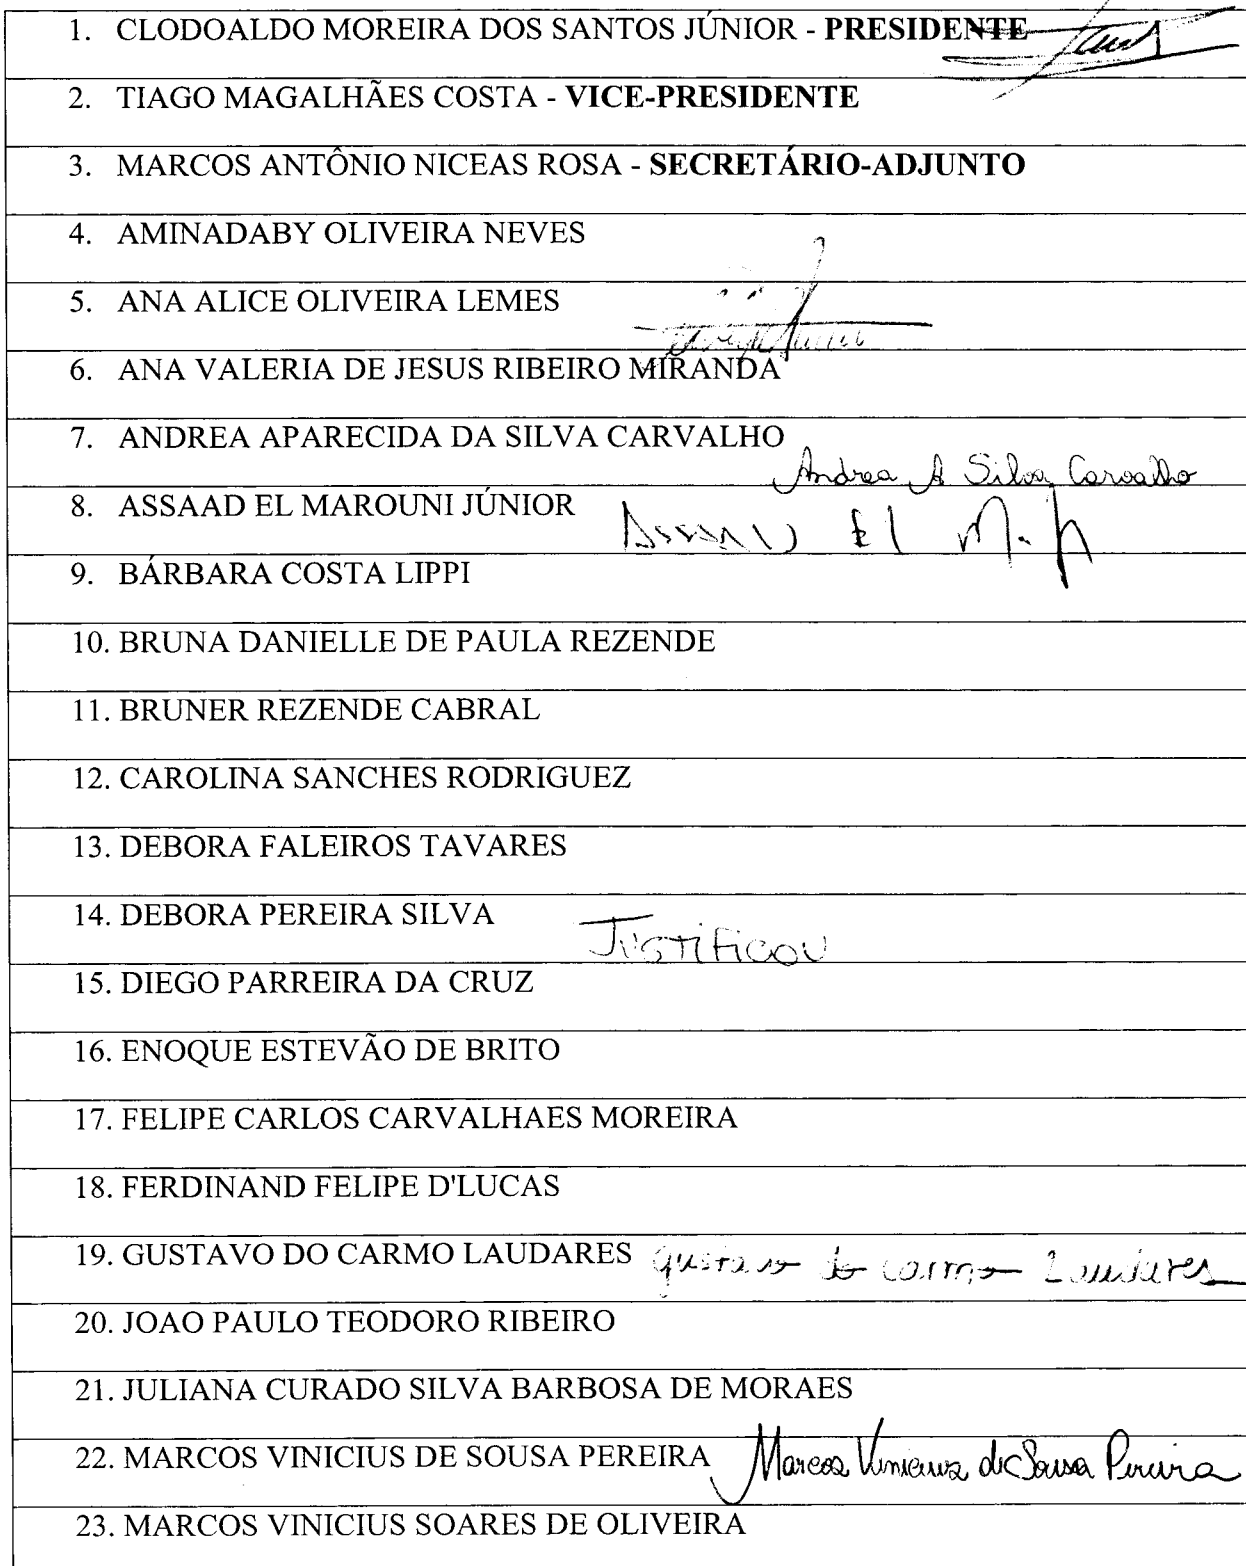 1. CLODOALDO MOREIRA DOS SANTOS JÚNIOR - PRESIDENTE
2. TIAGO MAGALHÃES COSTA - VICE-PRESIDENTE
3. MARCOS ANTÔNIO NICEAS ROSA - SECRETÁRIO-ADJUNTO
4. AMINADABY OLIVEIRA NEVES
5. ANA ALICE OLIVEIRA LEMES
6. ANA VALERIA DE JESUS RIBEIRO MIRANDA
7. ANDREA APARECIDA DA SILVA CARVALHO
Andrea A Silva Carvalho
8. ASSAAD EL MAROUNI JÚNIOR
9. BÁRBARA COSTA LIPPI
10. BRUNA DANIELLE DE PAULA REZENDE
11. BRUNER REZENDE CABRAL
12. CAROLINA SANCHES RODRIGUEZ
13. DEBORA FALEIROS TAVARES
14. DEBORA PEREIRA SILVA
JUSTIFICOU
15. DIEGO PARREIRA DA CRUZ
16. ENOQUE ESTEVÃO DE BRITO
17. FELIPE CARLOS CARVALHAES MOREIRA
18. FERDINAND FELIPE D'LUCAS
19. GUSTAVO DO CARMO LAUDARES Gustavo do Carmo Laudares
20. JOAO PAULO TEODORO RIBEIRO
21. JULIANA CURADO SILVA BARBOSA DE MORAES
22. MARCOS VINICIUS DE SOUSA PEREIRA Marcos Vinicius de Sousa Pereira
23. MARCOS VINICIUS SOARES DE OLIVEIRA